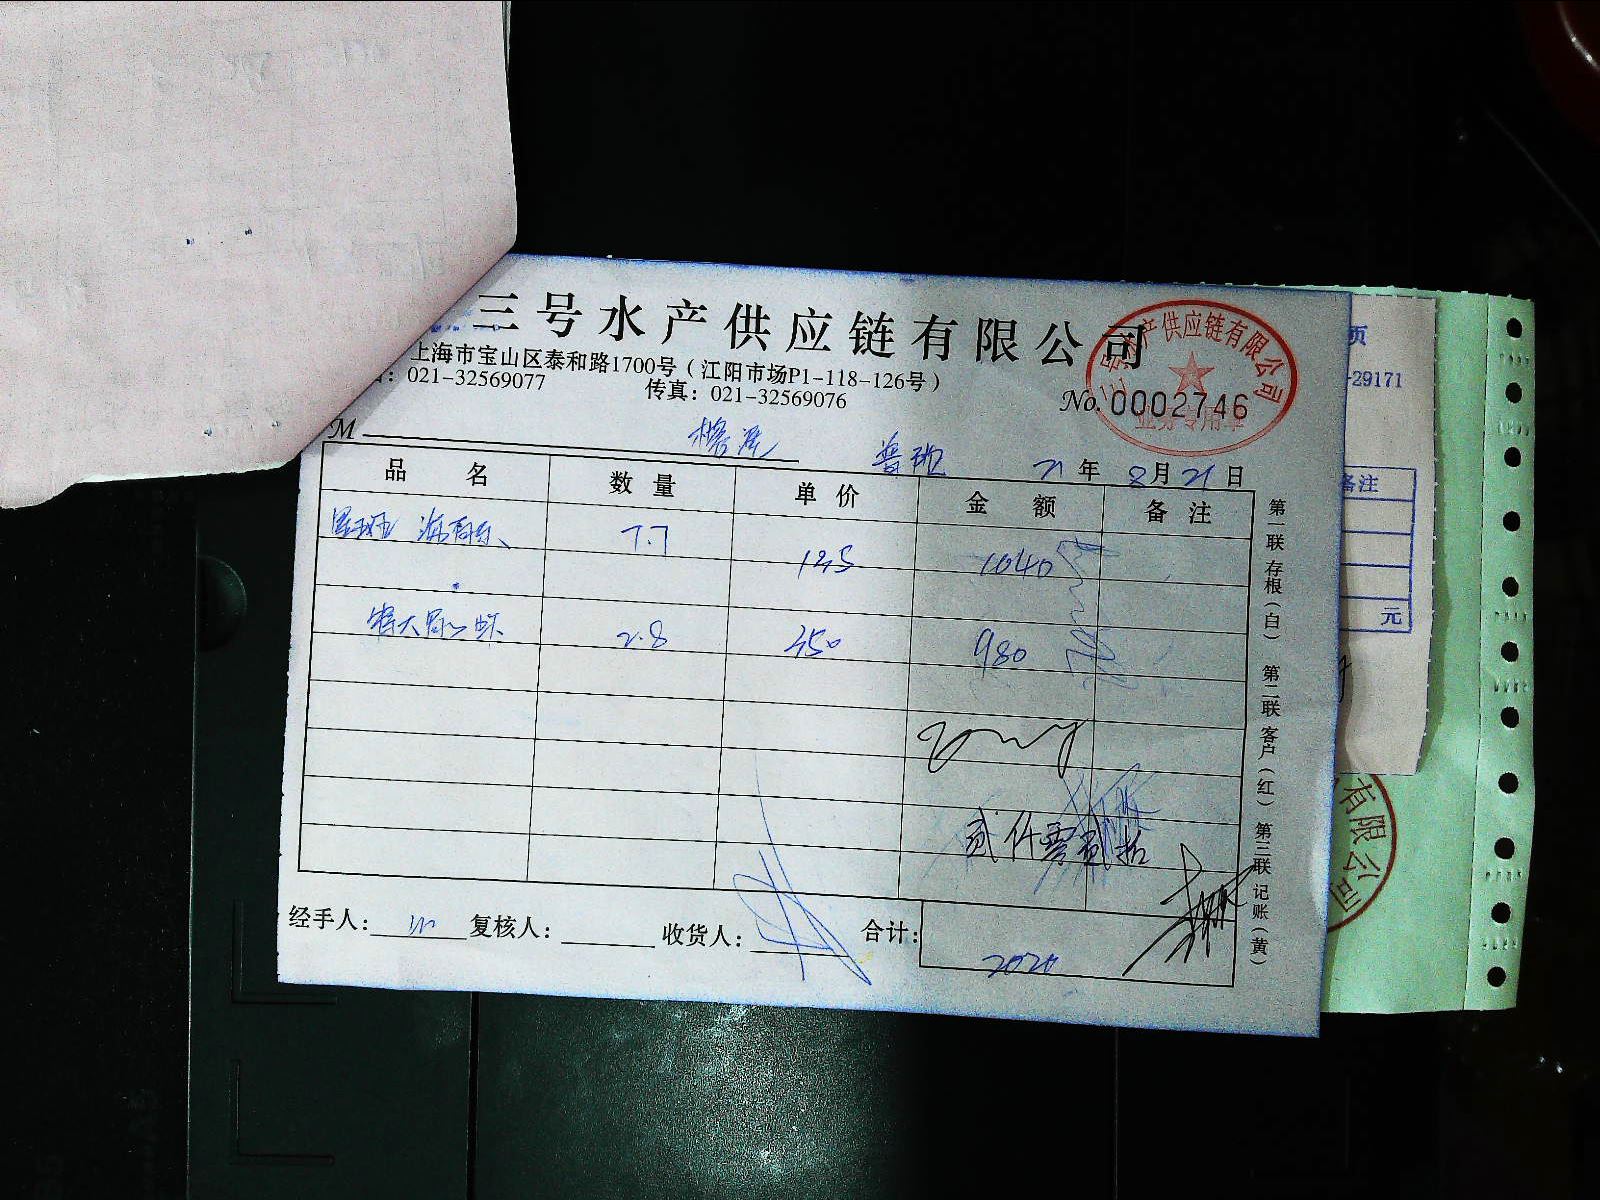 三号水产供应链有限公司
上海市宝山区泰和路1700号(江阳市场P1-118-126号)
：021-32569077 传真：021-32569076
No. 0002746
号水产供应链有限公司
业务专用章
M
21年8月21日
品名 数量 单价 金额 备注
7.7 135 1040
特大 2.8 350 980
贰仟零贰拾
经手人： 复核人： 收货人： 合计：
2020
第一联 存根(白) 第二联 客户(红) 第三联 记账(黄)
页
-29171
备注
元
有限公司